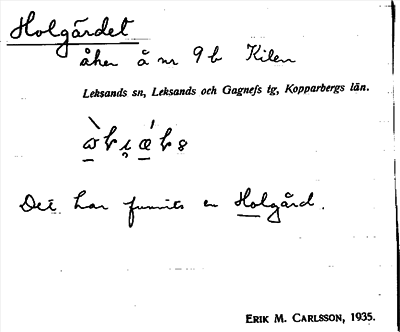 Holgärdet
åker å nr 9b Kilen
Leksands sn, Leksands och Gagnefs tg, Kopparbergs län.
Det har funnits en Holgård.
ERIK M. CARLSSON, 1935.